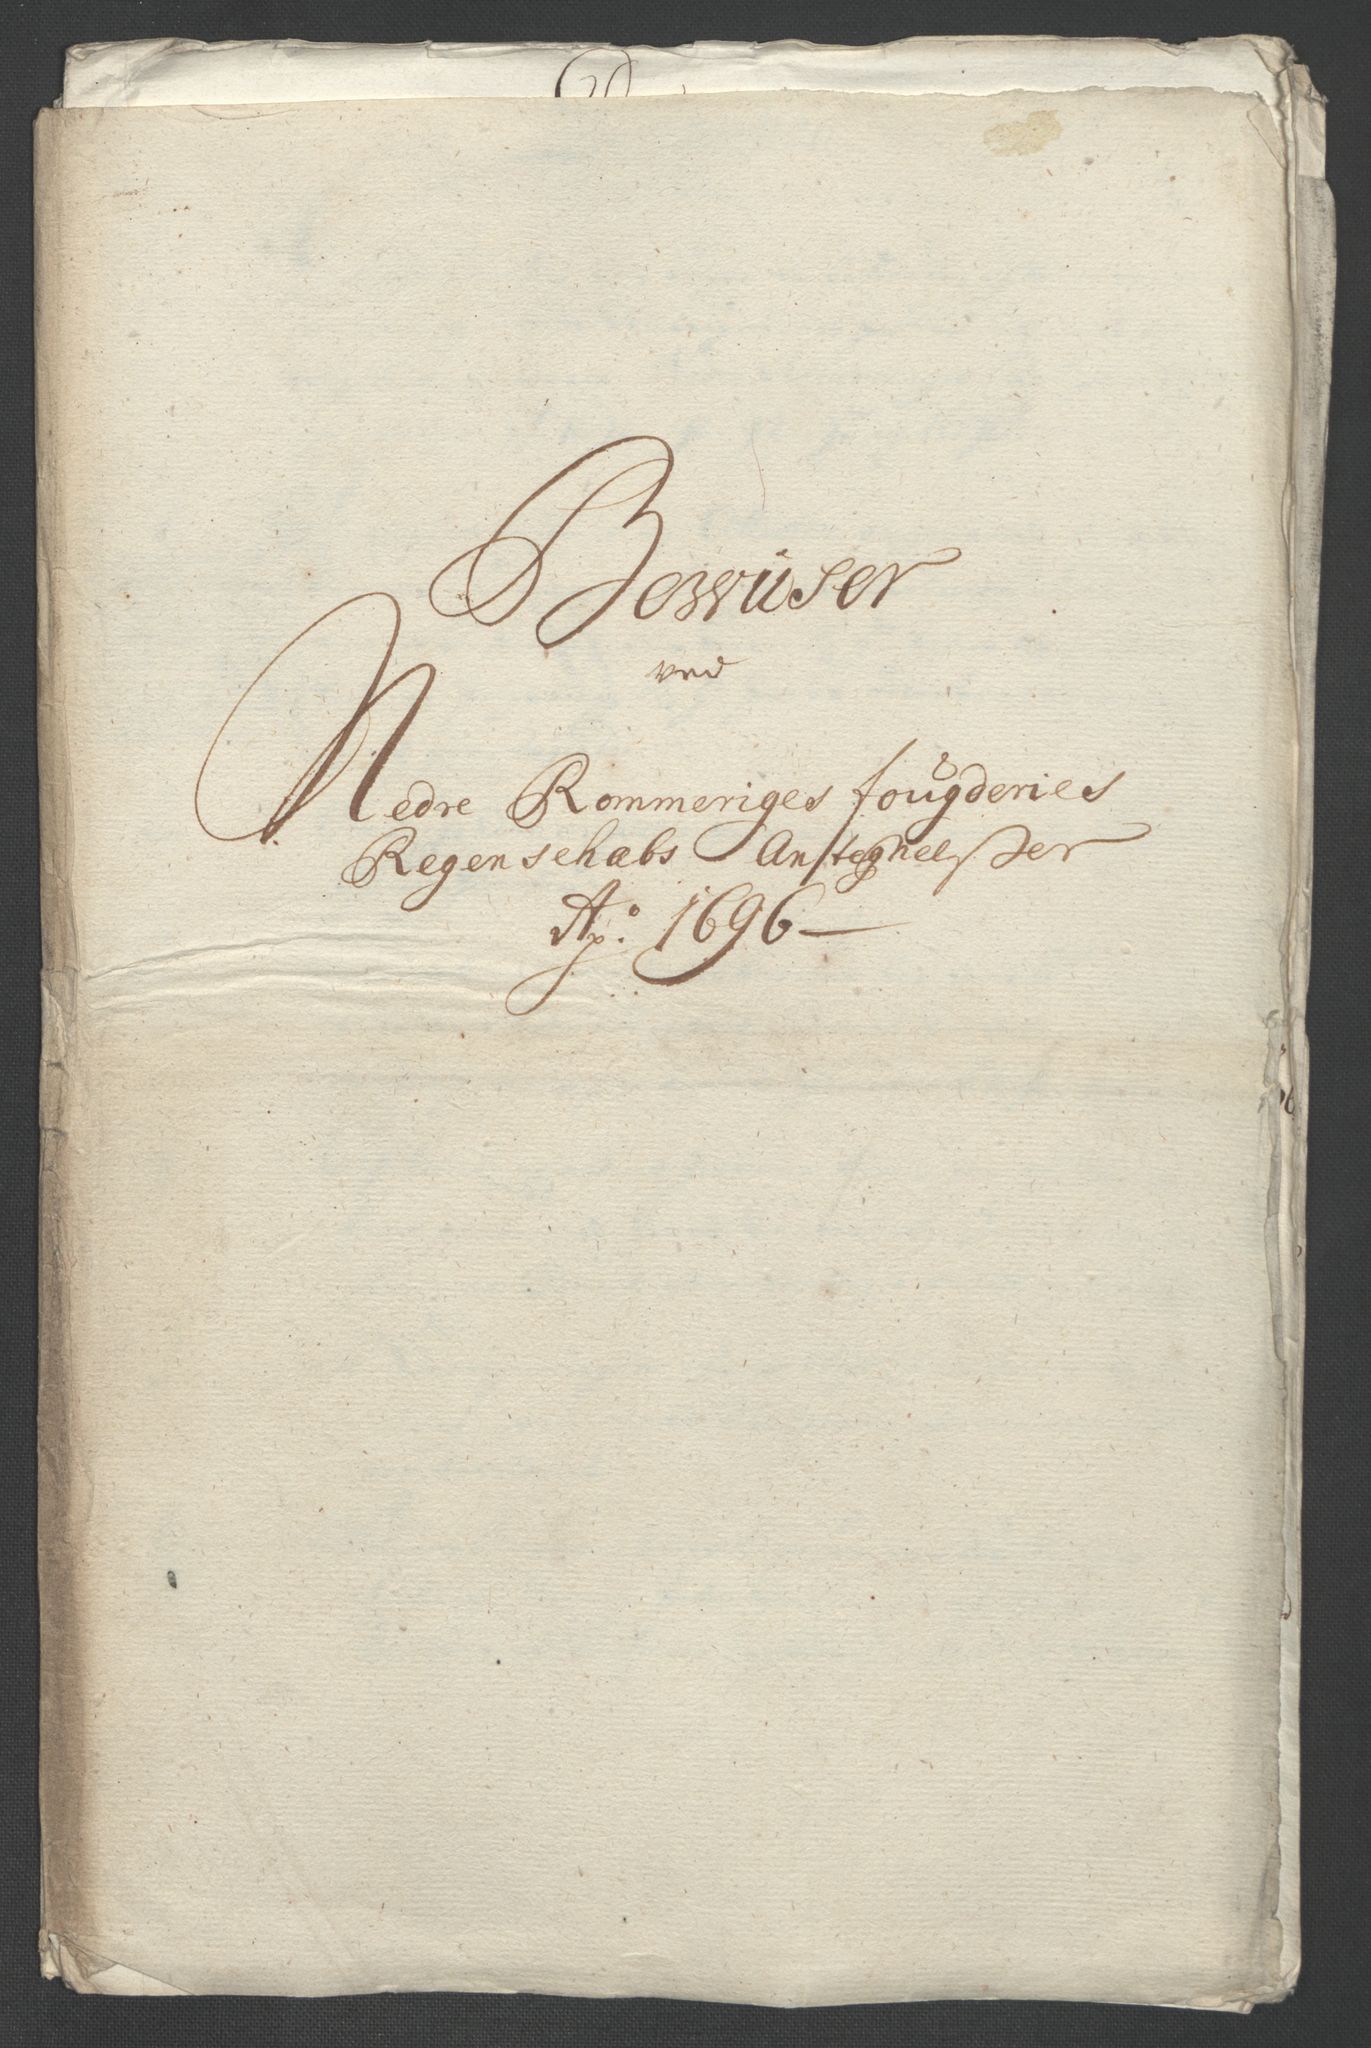 Bewiiser
ved
Nedre Rommeriges fougderies
Regenschabs Antegnelsser
Ao: 1696